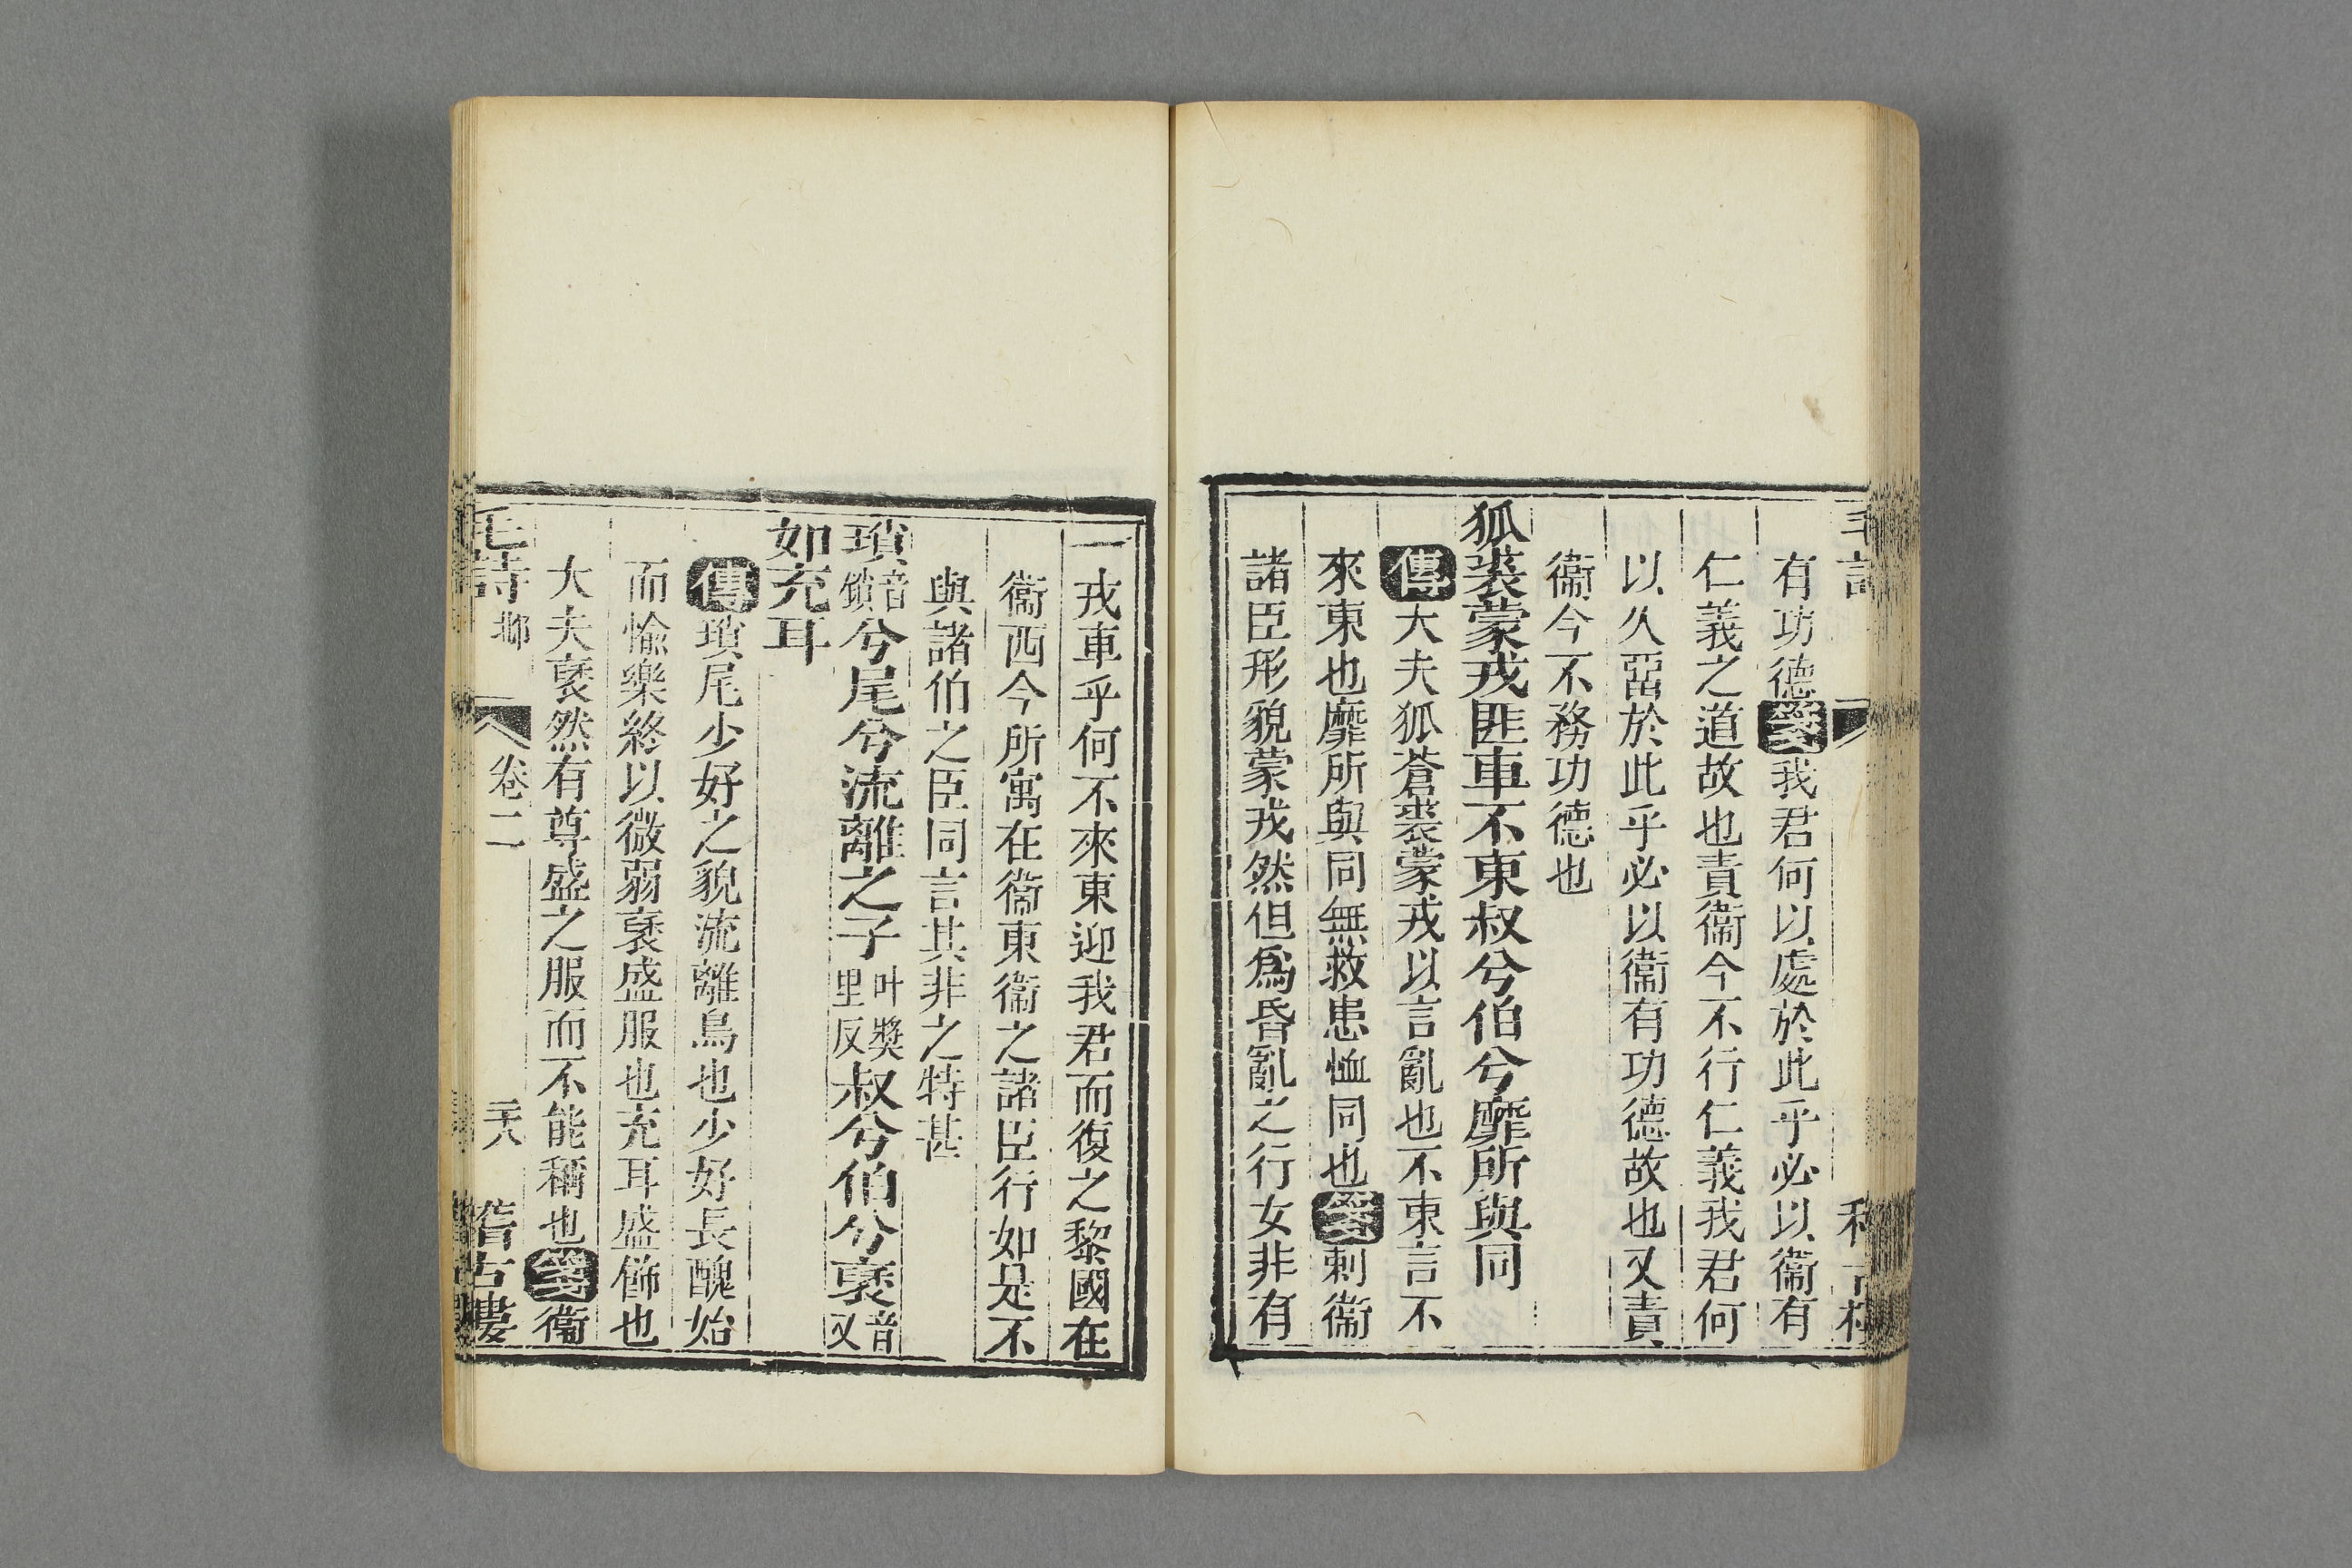 有功德箋我君何以處於此乎必以衞有
仁義之道故也責衞今不行仁義我君何
以久㽞於此乎必以衞有功德故也又責
衞今不務功德也
狐裘蒙戎匪車不東叔兮伯兮靡所與同
傳大夫狐蒼裘蒙戎以言亂也不東言不
來東也靡所與同無救患恤同也箋刺衞
諸臣形貌蒙戎然但爲昏亂之行女非有
一戎車乎何不來東迎我君而復之黎國在
衞西今所寓在衞東衞之諸臣行如是不
與諸伯之臣同言其非之特甚
瑣音鎖兮尾兮流離之子叶獎里反叔兮伯兮褎音又
如充耳
傳瑣尾少好之貌流離鳥也少好長醜始
而愉樂終以微弱褎盛服也充耳盛飾也
大夫褎然有尊盛之服而不能稱也箋衞
毛詩 邶 卷二 二十八 稽古樓